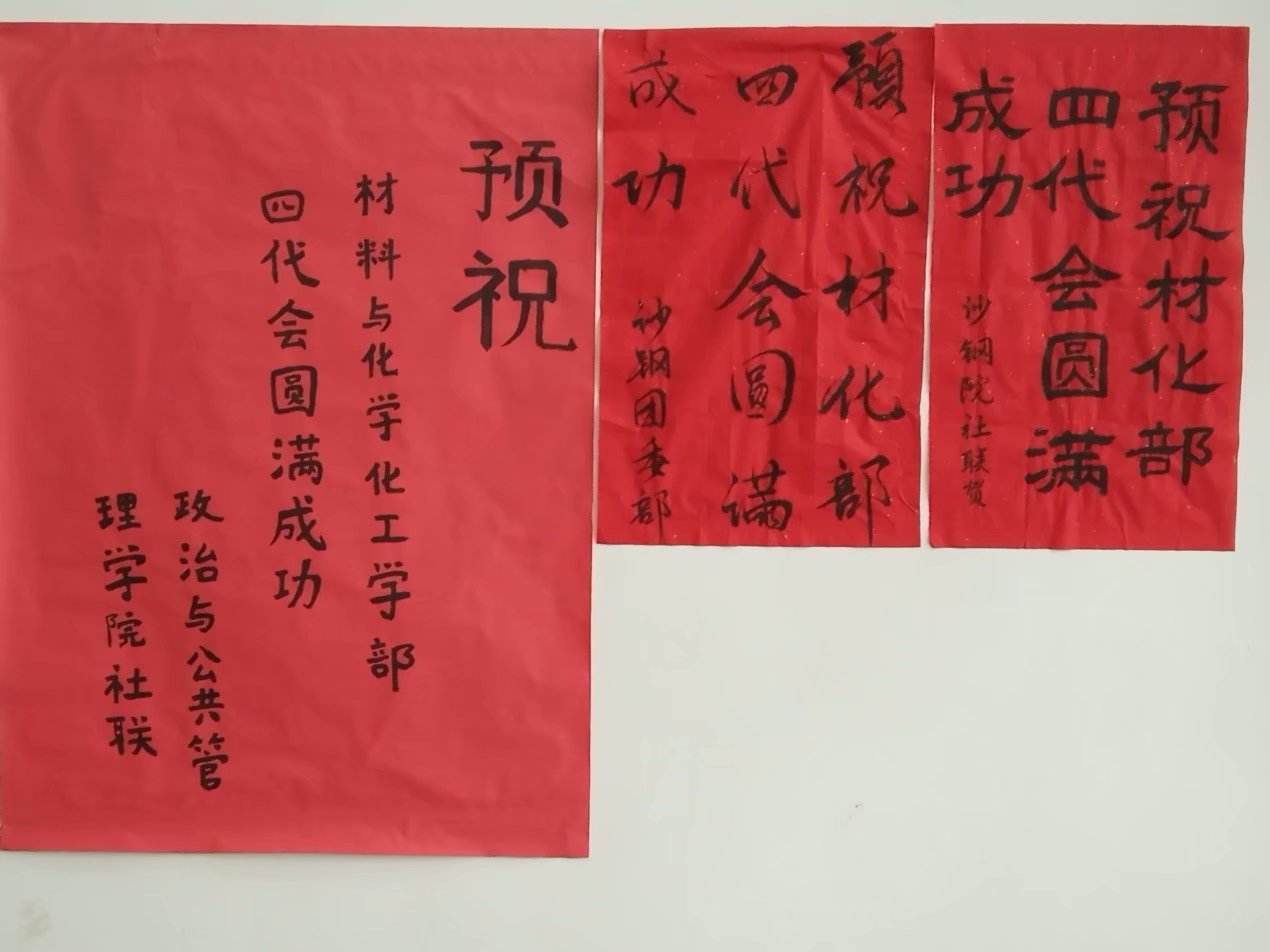 预祝材化部
四代会圆满
成功
沙钢院社联贺
預祝材化部
四代会圓满
成功
沙钢团委部
预祝
材料与化学化工学部
四代会圆满成功
政治与公共管
理学院社联